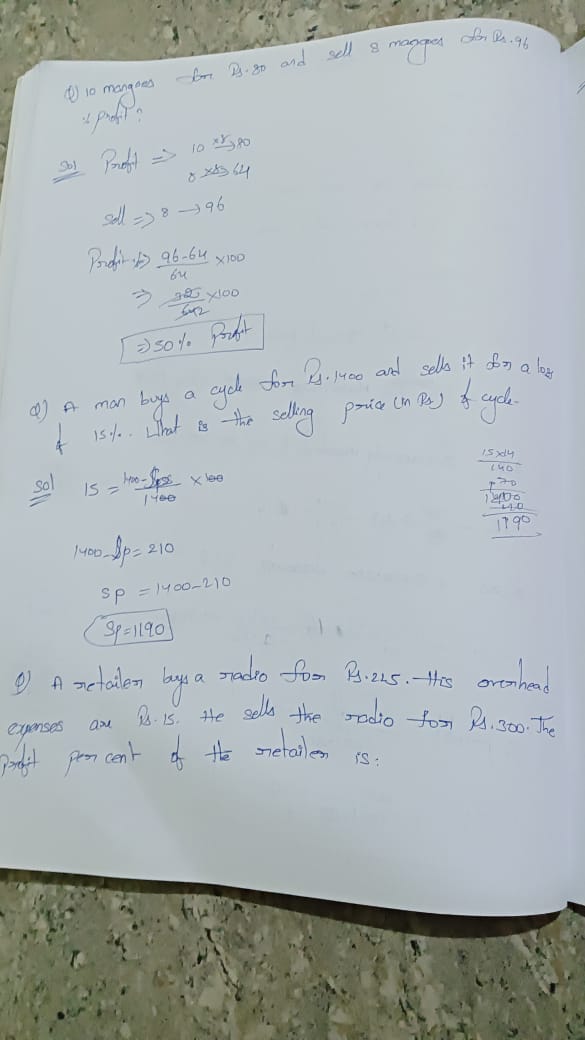 Q) 10 mangoes for Rs.80 and sell 8 mangoes for Rs.96
% profit?
Sol Profit => 10 ×8→80
8 ×8→64
Sell => 8 → 96
Profit % => 96-64/64 ×100
=> 32/64 ×100
=> 50% Profit
Q) A man buys a cycle for Rs.1400 and sells it for a loss
of 15%. What is the selling price (in Rs) of cycle.
Sol 15 = 1400-Sp/1400 × 100
15×14
140
70
1190
1400-Sp = 210
Sp = 1400-210
Sp=1190
Q) A retailer buys a radio for Rs.225. His overhead
expenses are Rs.15. He sells the radio for Rs.300. The
Profit per cent of the retailer is: